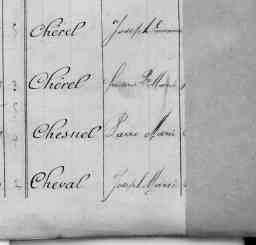 Chérel Joseph
Chérel Marie
Chesnel Pierre Marie
Cheval Joseph Marie